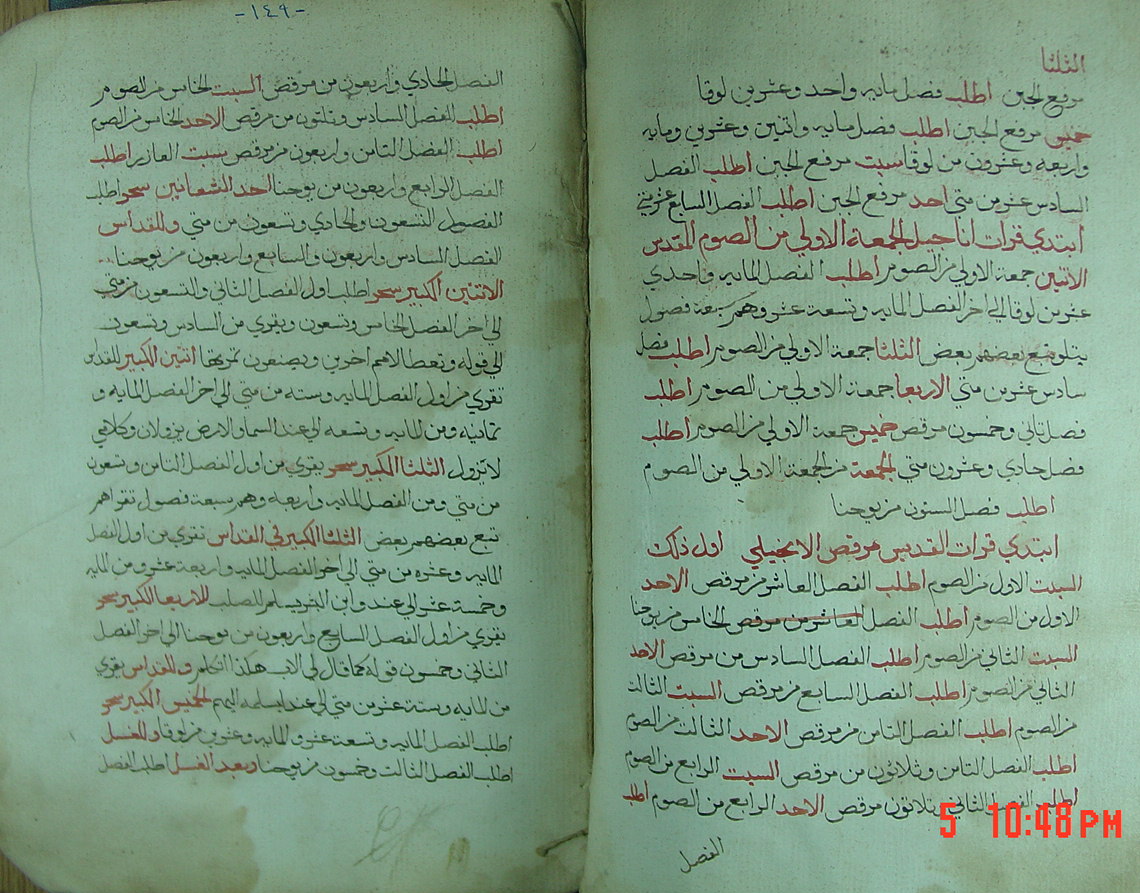 الثلثا
مرفع الجبن اطلب فصل مايه واحد وعشرين لوقا
خميس مرفع الجبن اطلب فصل مايه واتنين وعشرين ومايه
واربعه وعشرون من لوقا سبت مرفع الجبن اطلب الفصل
السادس عشر من متي احد مرفع الجبن اطلب الفصل السابع عشر متي
ابتدي قرات اناجيل الجمعة الاولي من الصوم المقدس
الاتنين جمعة الاولي من الصوم اطلب الفصل المايه واحدي
عشر من لوقا الي اخر الفصل المايه وتسعة عشر وهم سبعة فصول
يتلو بعضهم بعض الثلثا جمعة الاولي من الصوم اطلب فصل
سادس عشر من متي الاربعا جمعة الاولي من الصوم اطلب
فصل تاني وخمسون مرقص خميس جمعة الاولي من الصوم اطلب
فصل حادي وعشرون متي الجمعة من الجمعة الاولي من الصوم
اطلب فصل الستون من يوحنا
ابتدي قرات القديس مرقص الانجيلي اول ذلك
السبت الاول من الصوم اطلب الفصل العاشر من مرقص الاحد
الاول من الصوم اطلب الفصل العاشر من مرقص الخامس من يوحنا
السبت الثاني من الصوم اطلب الفصل السادس من مرقص الاحد
الثاني من الصوم اطلب الفصل السابع من مرقص السبت الثالث
من الصوم اطلب الفصل الثامن من مرقص الاحد الثالث من الصوم
اطلب الفصل الثامن وثلاثون من مرقص السبت الرابع من الصوم
اطلب الفصل الثاني وثلاثون مرقص الاحد الرابع من الصوم اطلب
الفصل
-١٤٩-
الفصل الحادي واربعون من مرقص السبت الخامس من الصوم
اطلب الفصل السادس وثلثون من مرقص الاحد الخامس من الصوم
اطلب الفصل الثامن واربعون من مرقص سبت العازر اطلب
الفصل الرابع واربعون من يوحنا احد الشعانين سحر اطلب
الفصول التسعون والحادي وتسعون من متي وللقداس
الفصل السادس واربعون والسابع واربعون من يوحنا
الاتنين الكبير سحر اطلب اول الفصل الثاني والتسعون من متي
الي اخر الفصل الخامس وتسعون ويقري من السادس وتسعون
الي قوله وتعطا لامم اخرين ويصنعون ثمرتها اتنين الكبير للقداس
تقري من اول الفصل المايه وسته من متي الي اخر الفصل المايه و
تمانيه ومن المايه وتسعه الي عند السما والارض يزولان وكلامي
لا يزول الثلثا الكبير سحر يقري من اول الفصل الثامن وتسعون
من متي ومن الفصل المايه واربعه وهم سبعة فصول تقراهم
تتبع بعضهم بعض الثلثا الكبير في القداس تقري من اول الفصل
المايه وعشره من متي الي اخر الفصل المايه واربعة عشر ومن المايه
وخمسة عشر الي عند وابن البشر يسلم للصلب للاربعا الكبير سحر
يقري من اول الفصل السابع واربعون من يوحنا الي اخر الفصل
الثاني وخمسون قوله كما قال لي الاب هكذا اتكلم وللقداس يقري
من المايه وستة عشر من متي الي عند ليسلمه اليهم الخميس الكبير سحر
اطلب الفصل المايه وتسعة عشر والمايه وعشرين من لوقا وللغسل
اطلب الفصل الثالث وخمسون من يوحنا وبعد الغسل اطلب الفصل
5 10:48 PM